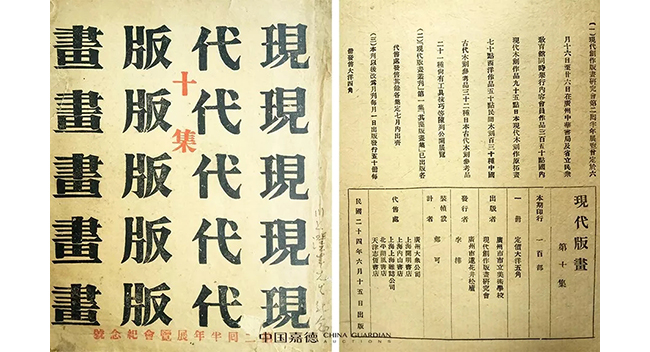 現代版畫
現代版畫
現代版畫
現代版畫
現代版畫
十集
半年展覽會紀念號
中国嘉德
CHINA GUARDIAN
AUCTIONS
(一)現代創作版畫研究會第二周半年展覽會定於六
月十六日至廿六日在廣州中華書局及省立民眾
教育館同時舉行內容會員作品三百五十點國內
現代木刻作品九十五點日本現代木刻作原拓畫
七十點西洋作品五十點民間木刻百三十種中國
古代木刻參考品三十二種日本古代木刻參考品
二十一種尚有工具技巧等陳列公開展覽
(二)「現代版畫叢刊」第一集「版畫集」已出版各
代售處發售其餘各集定七月內出齊
(三)本刊以後改為月刊每月一日出版發行五十冊每
冊發售大洋四角
現代版畫
第十集
本期印行 一百部
一冊 定價大洋五角
出版者 廣州市市立美術學校
現代創作版畫研究會
發行者 廣州市蓮花井松廬
李樺
裝幀設計者 鄭可
代售處 廣州大眾公司
上海開明書店
上海內山書店
上海上海雜誌公司
北平
天津志恒書店
民國二十四年六月十五日出版